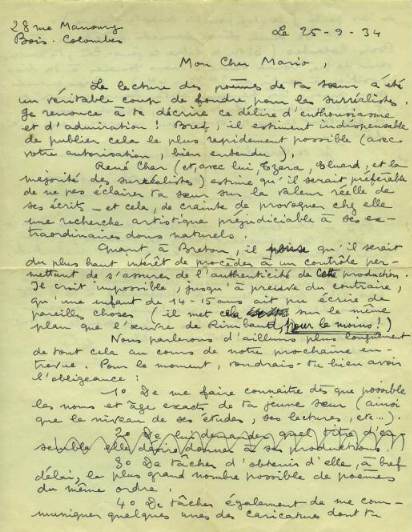 28 rue Mansung
Bois. Colombes
Le 25-9-34
Mon Cher Mario,
La lecture des poèmes de ta sœur a été
un véritable coup de foudre pour les surréalistes.
Je renonce à te décrire ce délire d'enthousiasme
et d'admiration ! Bref, il estiment indispensable
de publier cela le plus rapidement possible (avec
votre autorisation, bien entendu),
René Char (et avec lui, Tzara, Eluard, et la
majorité des surréalistes) estime qu'il serait préférable
de ne pas éclairer ta sœur sur la valeur réelle de
ses écrits, et cela, de crainte de provoquer chez elle
une recherche artistique préjudiciable à ses ex-
traordinaires dons naturels.
Quant à Breton, il pense qu'il serait
du plus haut intérêt de procéder à un contrôle per-
mettant de s'assurer de l'authenticité de cette production.
Il croit impossible, jusqu'à preuve du contraire,
qu'une enfant de 14-15 ans ait pu écrire de
pareilles choses (il met cela sur le même
plan que l'œuvre de Rimbaud, pour le moins !)
Nous parlerons d'ailleurs plus longuement
de tout cela au cours de notre prochaine en-
trevue. Pour le moment, voudrais-tu bien avoir
l'obligeance :
1° De me faire connaître dès que possible
les noms et âge exacts de ta jeune sœur (ainsi
que le niveau de ses études, ses lectures, etc...).
2° De lui demander quel titre d'en-
semble elle désire donner à ses productions
3° De tâcher d'obtenir d'elle, à bref
délai, le plus grand nombre possible de poèmes
du même ordre.
4° De tâcher également de me com-
muniquer quelques unes de caricatures dont tu